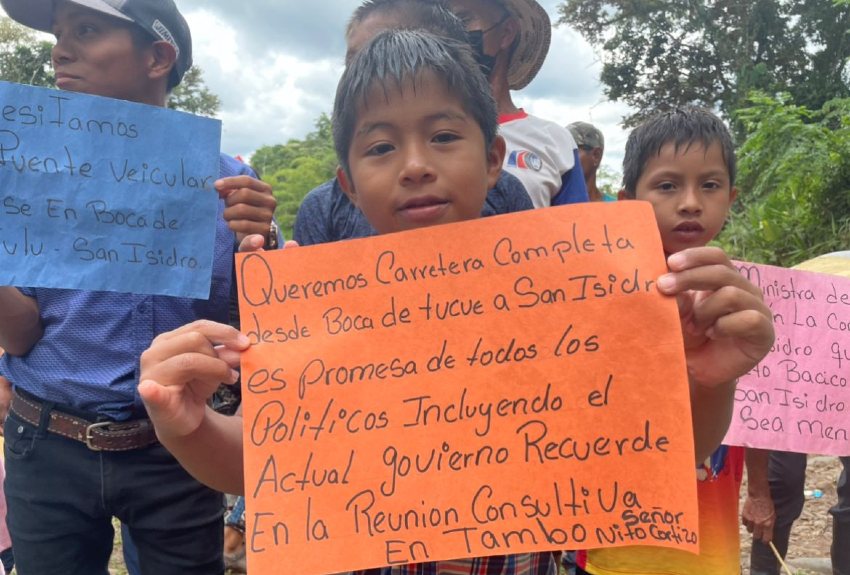 esitamos
Puente Veicular
se En Boca de
ulu - San Isidro.
Queremos Carretera Completa
desde Boca de tucue a San Isidr
es promesa de todos los
Politicos Incluyendo el
Actual govierno Recuerde
En la Reunion Consultiva
En Tambo Señor Nito Cortizo
Ministra de
La Co
sidro qu
to Bacico
San Isidro
Sea men